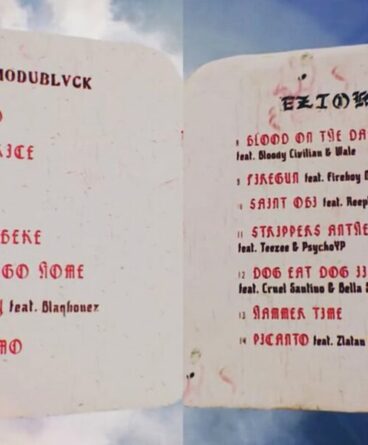 MODUBLVCK
RICE
HERE
GO HOME
feat. Blaqbonez
MO
EZIOK
8 BLOOD ON THE DA
feat. Bloody Civilian & Wale
9 FIREGUN feat. Fireboy D
10 SAINT OBI feat. Reep
11 STRIPPERS ANTHE
feat. Teezee & PsychoYP
12 DOG EAT DOG II
feat. Cruel Santino & Bella S
13 HAMMER TIME
14 PICANTO feat. Zlatan